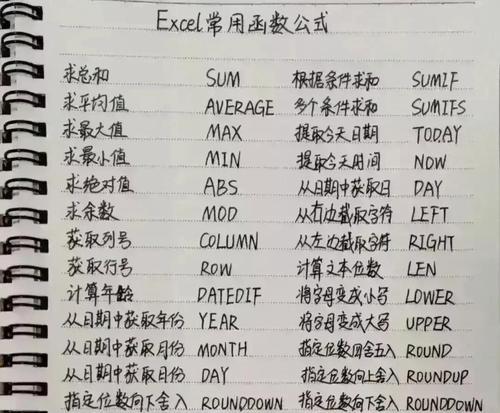 Excel常用函数公式
求总和 SUM 根据条件求和 SUMIF
求平均值 AVERAGE 多个条件求和 SUMIFS
求最大值 MAX 提取今天日期 TODAY
求最小值 MIN 提取今天时间 NOW
求绝对值 ABS 从日期中获取日 DAY
求余数 MOD 从右边截取字符 LEFT
获取列号 COLUMN 从左边截取字符 RIGHT
获取行号 ROW 计算文本位数 LEN
计算年龄 DATEDIF 将字母变成小写 LOWER
从日期中获取年份 YEAR 将字母变成大写 UPPER
从日期中获取月份 MONTH 指定位数四舍五入 ROUND
从日期中获取日份 DAY 指定位数向上舍入 ROUNDUP
指定位数向下舍入 ROUNDDOWN 指定位数向下舍入 ROUNDDOWN